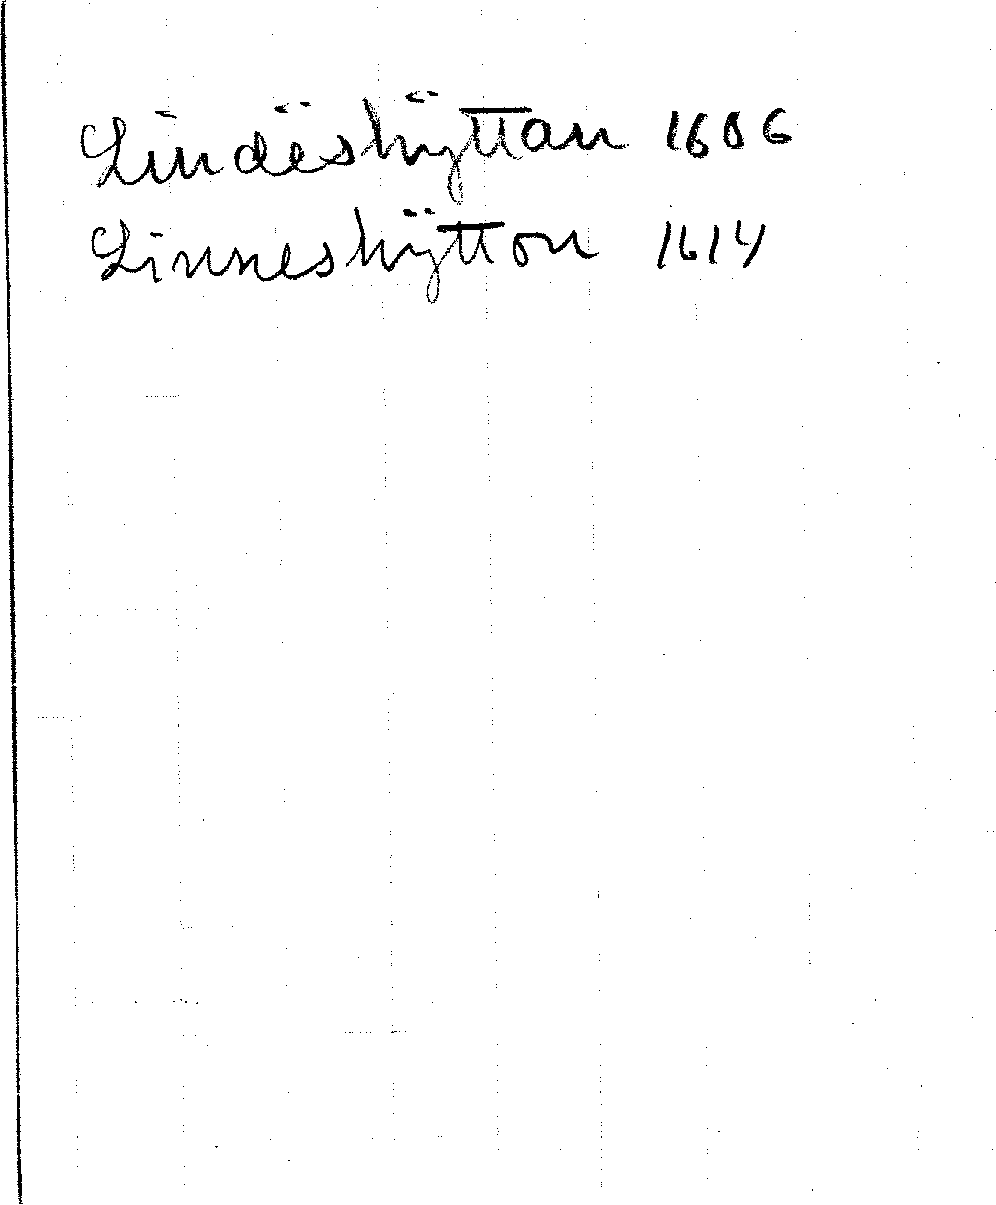 Lindëshÿttan 1606
Linneshÿtton 1614